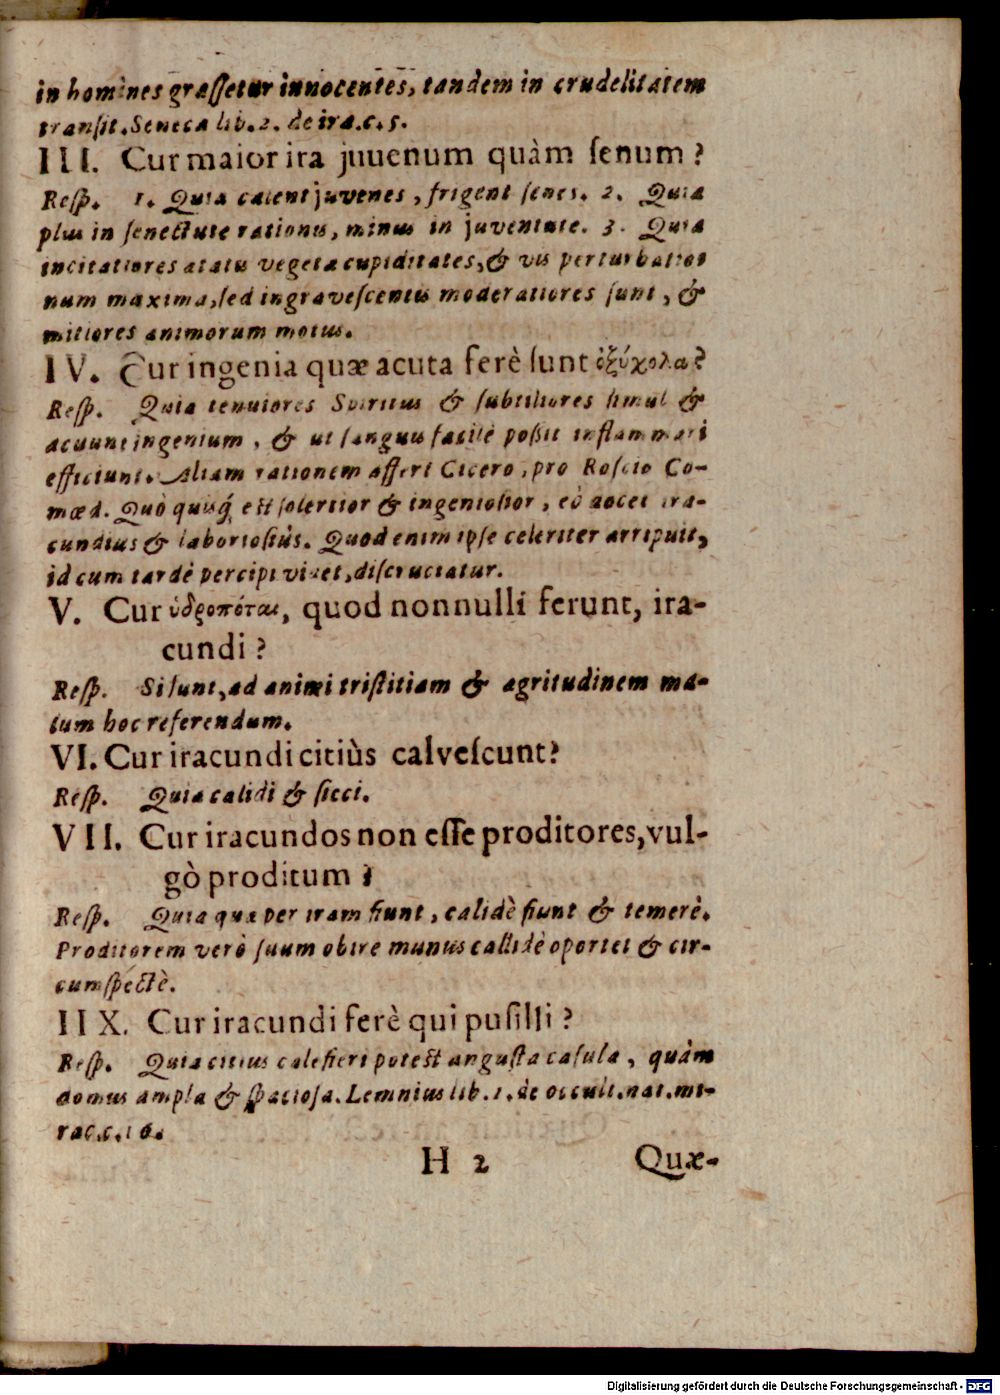 in homines graſſetur innocentes, tandem in crudelitatem
tranſit. Seneca lib. 2. de ira. c. 5.
III. Cur maior ira juuenum quàm ſenum?
Reſp. 1. Quia calent juvenes, frigent ſenes. 2. Quia
plus in ſenectute rationis, minus in juventute. 3. Quia
incitatiores ætatis vegetæ cupiditates, & vis perturbatio-
num maxima, ſed ingraveſcentis moderatiores ſunt, &
mitiores animorum motus.
IV. Cur ingenia quæ acuta ferè ſunt ὀξύχολα?
Reſp. Quia tenuiores Spiritus & ſubtiliores ſimul &
acuunt ingenium, & ut ſanguis facilè poſſit inflammari
efficiunt. Aliam rationem affert Cicero, pro Roſcio Co-
mœd. Quò quiſq́; eſt ſolertior & ingenioſior, eò docet ira-
cundius & laborioſiùs. Quod enim ipſe celeriter arripuit,
id cum tardè percipi videt, diſcruciatur.
V. Cur ὑδροπόται, quod nonnulli ferunt, ira-
cundi?
Reſp. Si ſunt, ad animi triſtitiam & ægritudinem ma-
lum hoc referendum.
VI. Cur iracundi citiùs calveſcunt?
Reſp. Quia calidi & ſicci.
VII. Cur iracundos non eſſe proditores, vul-
gò proditum?
Reſp. Quia quæ per iram fiunt, calidè fiunt & temerè.
Proditorem verò ſuum obire munus callidè oportet & cir-
cumſpectè.
IIX. Cur iracundi ferè qui puſilli?
Reſp. Quia citius calefieri poteſt anguſta caſula, quàm
domus ampla & ſpacioſa. Lemnius lib. 1. de occult. nat. mi-
rac. c. 16.
H 2 Quæ-
Digitalisierung gefördert durch die Deutsche Forschungsgemeinschaft - DFG